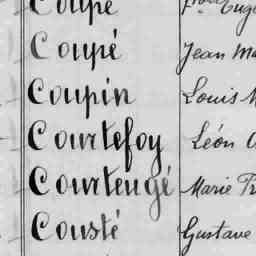 Coupé
Coupé Jean
Coupin Louis
Courtefoy Léon
Courteugé Marie
Cousté Gustave